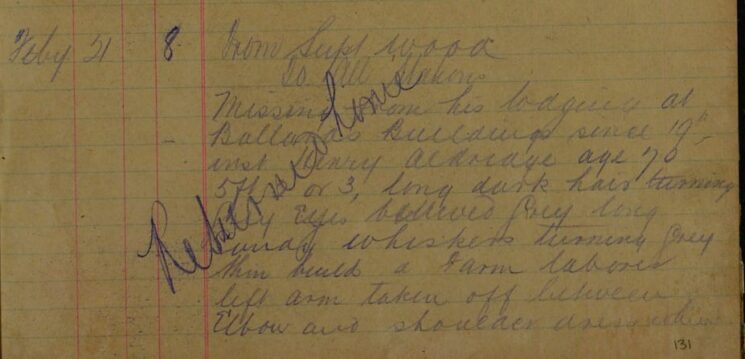 Feby 21 8 From Supt Wood
To All Stations
Missing from his lodging at
Ballards Buildings since 19th
inst Henry Aldridge age 70
5ft 2 or 3, long dark hair turning
Grey Eyes believed Grey long
sandy whiskers turning Grey
thin build a Farm laborer
left arm taken off between
Elbow and shoulder dress
Returned home
131